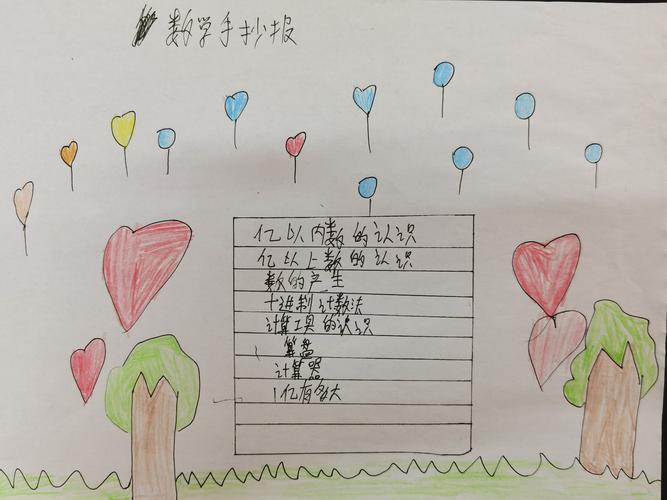 数学手抄报
亿以内数的认识
亿以上数的认识
数的产生
十进制计数法
计算工具的认识
算盘
计算器
1亿有多大